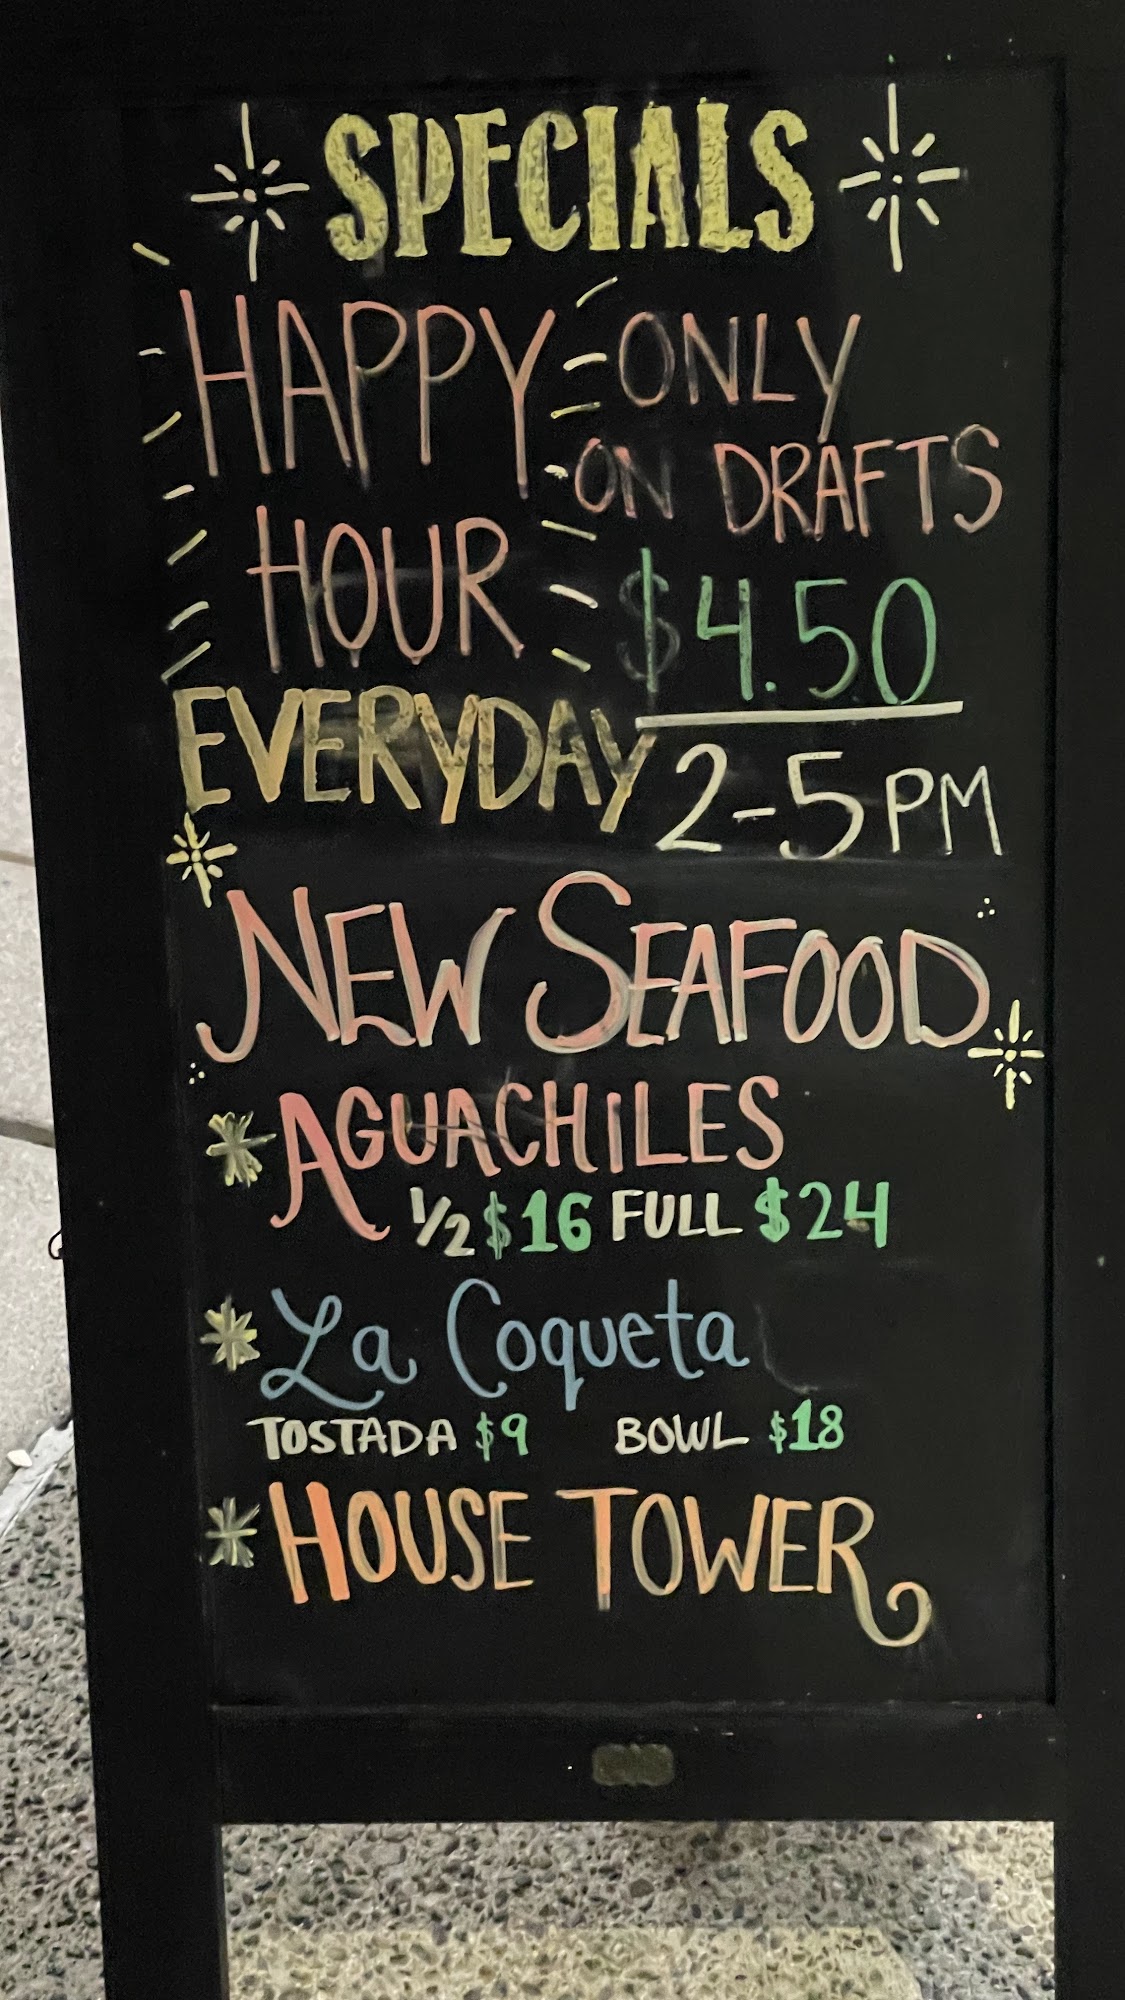 SPECIALS
HAPPY
HOUR
ONLY
ON DRAFTS
$4.50
EVERYDAY
2-5PM
NEW SEAFOOD
AGUACHILES
1/2 $16 FULL $24
La Coqueta
TOSTADA $9 BOWL $18
HOUSE TOWER